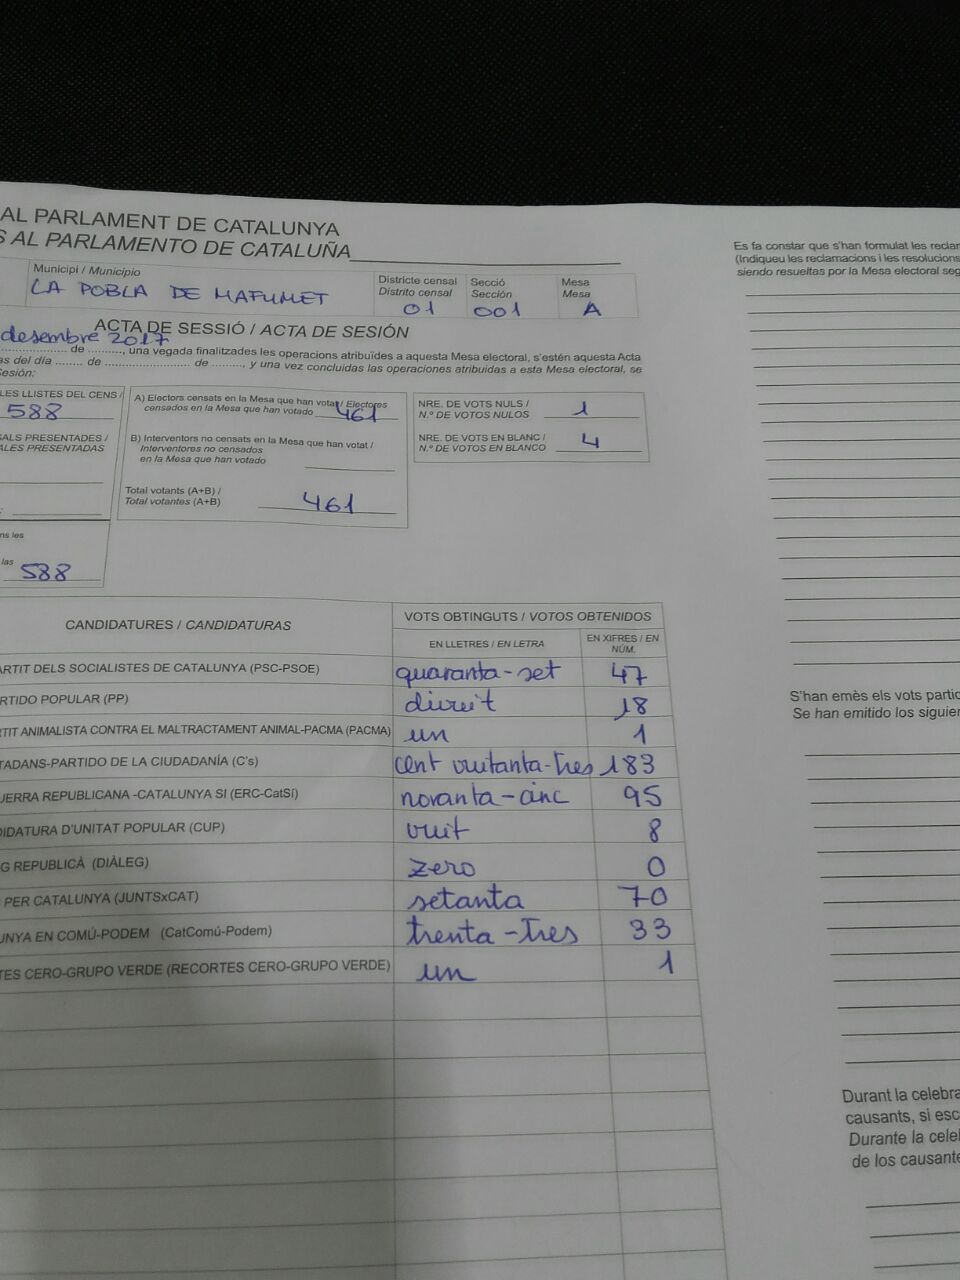 AL PARLAMENT DE CATALUNYA
S AL PARLAMENTO DE CATALUÑA
Municipi / Municipio
LA POBLA DE MAFUMET
Districte censal
Distrito censal
01
Secció
Sección
001
Mesa
Mesa
A
ACTA DE SESSIÓ / ACTA DE SESIÓN
desembre 2017
de .........., una vegada finalitzades les operacions atribuïdes a aquesta Mesa electoral, s'estén aquesta Acta
as del día ........ de ........................ de ........., y una vez concluidas las operaciones atribuidas a esta Mesa electoral, se
Sesión:
LES LLISTES DEL CENS /
588
ALS PRESENTADES /
ALES PRESENTADAS
ns les
las
588
A) Electors censats en la Mesa que han votat / Electores
censados en la Mesa que han votado
461
B) Interventors no censats en la Mesa que han votat /
Interventores no censados
en la Mesa que han votado
Total votants (A+B) /
Total votantes (A+B)
461
NRE. DE VOTS NULS /
N.º DE VOTOS NULOS
1
NRE. DE VOTS EN BLANC /
N.º DE VOTOS EN BLANCO
4
CANDIDATURES / CANDIDATURAS
VOTS OBTINGUTS / VOTOS OBTENIDOS
EN LLETRES / EN LETRA
EN XIFRES / EN
NÚM.
ARTIT DELS SOCIALISTES DE CATALUNYA (PSC-PSOE) quaranta-set 47
RTIDO POPULAR (PP) divuit 18
TIT ANIMALISTA CONTRA EL MALTRACTAMENT ANIMAL-PACMA (PACMA) un 1
TADANS-PARTIDO DE LA CIUDADANÍA (C's) cent vuitanta-tres 183
UERRA REPUBLICANA -CATALUNYA SI (ERC-CatSí) noranta-cinc 95
DIDATURA D'UNITAT POPULAR (CUP) vuit 8
G REPUBLICÀ (DIÀLEG) zero 0
PER CATALUNYA (JUNTSxCAT) setanta 70
UNYA EN COMÚ-PODEM (CatComú-Podem) trenta-tres 33
TES CERO-GRUPO VERDE (RECORTES CERO-GRUPO VERDE) un 1
Es fa constar que s'han formulat les reclam
(Indiqueu les reclamacions i les resolucions
siendo resueltas por la Mesa electoral seg
S'han emès els vots partic
Se han emitido los siguien
Durant la celebra
causants, si esc
Durante la cele
de los causante